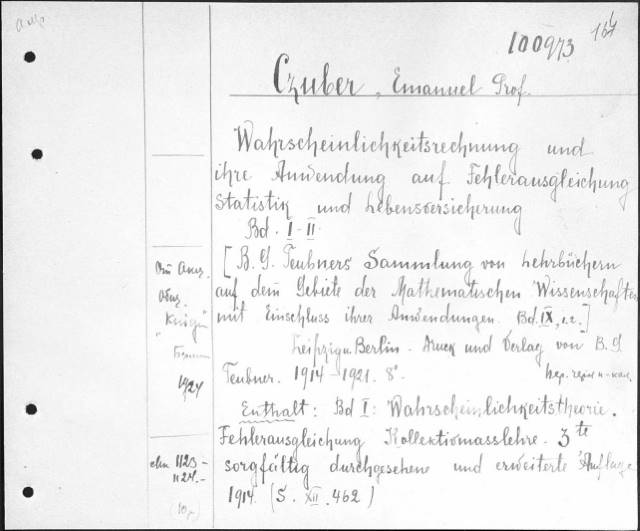 100973
Czuber, Emanuel Prof.
Wahrscheinlichkeitsrechnung und
ihre Anwendung auf Fehlerausgleichung
Statistik und Lebensversicherung
Bd. I-II
[B. G. Teubners Sammlung von Lehrbüchern
auf dem Gebiete der Mathematischen Wissenschaften
mit Einschluss ihrer Anwendungen. Bd. IX, 1.2.]
Leipzig u. Berlin. Druck und Verlag von B. G.
Teubner. 1914-1921. 8°.
Enthält: Bd I: Wahrscheinlichkeitstheorie.
Fehlerausgleichung Kollektivmasslehre. 3te
sorgfältig durchgesehene und erweiterte Auflage
1914 (S. XII. 462)
"Книга"
1924
1123-
1124.-